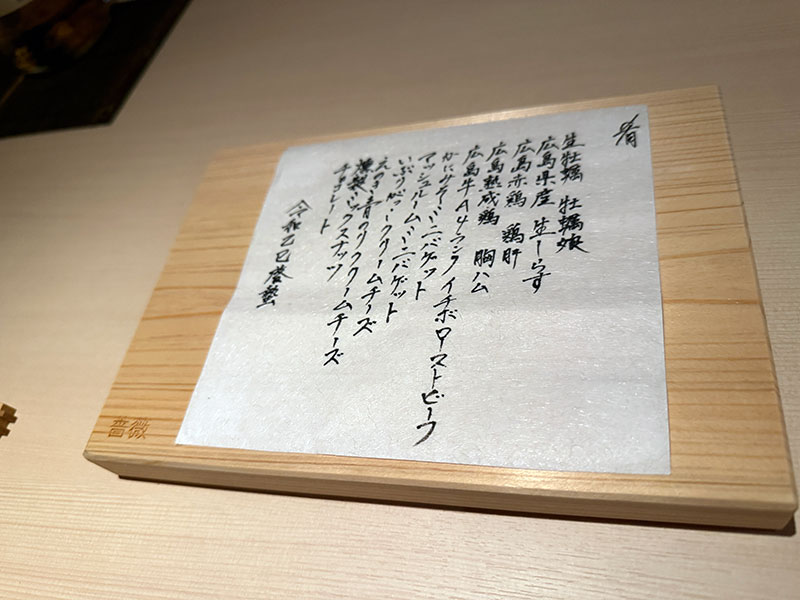 肴
生牡蠣 牡蠣娘
広島県産 生しらす
広島赤鶏 鶏肝
広島熟成鶏 胸ハム
広島牛A4ランクイチボローストビーフ
かにみそミニバゲット
マッシュルームミニバゲット
いぶりがっこクリームチーズ
えのき青のりクリームチーズ
燻製ミックスナッツ
チョコレート
令和乙巳啓蟄
薔薇